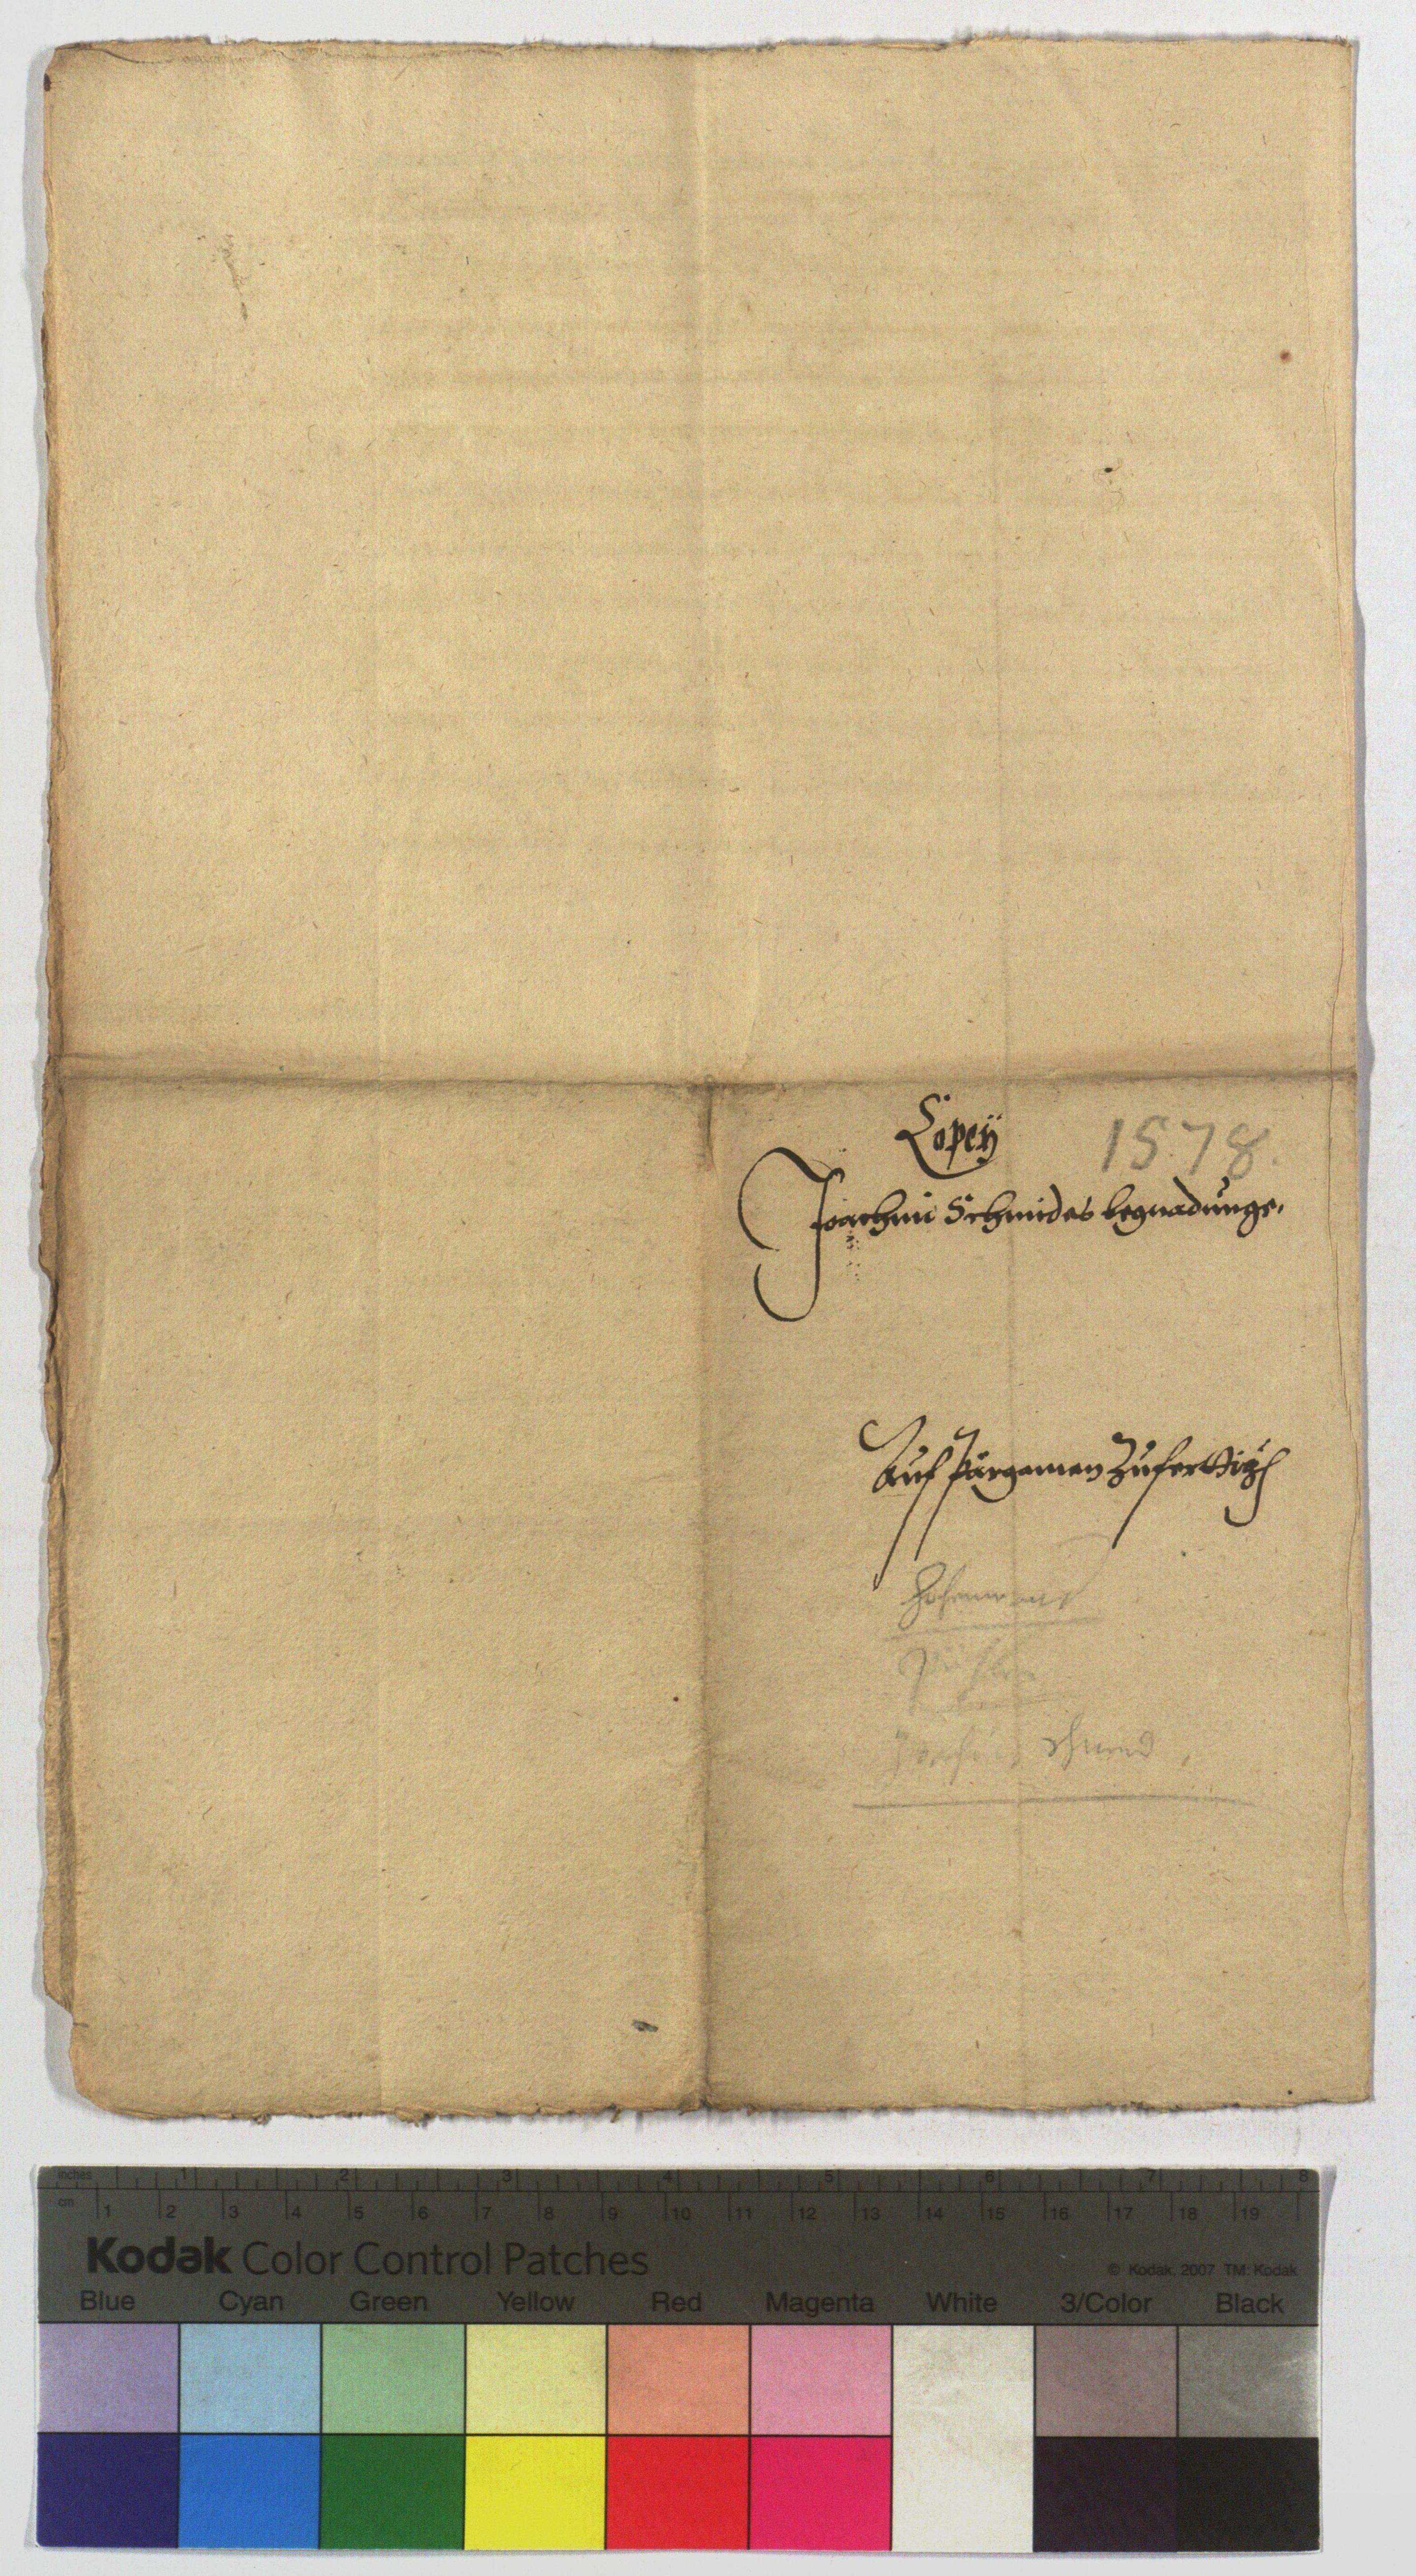 Copey
1578.
Joachim Schmides begnadunge.
Auf Pargamen Zufertigē
inches 1 2 3 4 5 6 7 8
cm 1 2 3 4 5 6 7 8 9 10 11 12 13 14 15 16 17 18 19
Kodak Color Control Patches
© Kodak, 2007 TM: Kodak
Blue Cyan Green Yellow Red Magenta White 3/Color Black